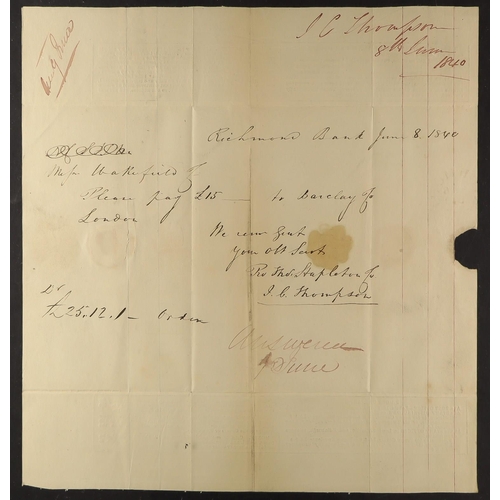 J C Thompson
8th June
1840
Richmond Bank June 8. 1840
Messrs Wakefield & Co
Please pay £15 — to Barclay & Co
London
We rem Gent
Your Obt Servt
Pro Thos. Stapleton & Co
J. C. Thompson
Dr
£25.12.1 — Order
Answered
9 June